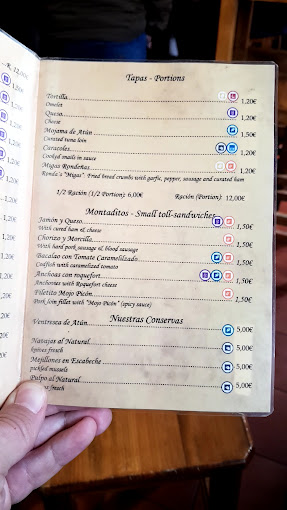 € 12,00€
1,20€
1,20€
1,20€
1,20€
1,20€
1,20€
1,20€
1,20€
1,20€
Tapas - Portions
Tortilla 1,20€
Omelet
Queso 1,20€
Cheese
Mojama de Atún 1,50€
Curated tuna loin
Caracoles 1,20€
Cooked snails in sauce
Migas Rondeñas 1,20€
Ronda's "Migas". Fried bread crumbs with garlic, pepper, sausage and curated ham
1/2 Ración (1/2 Portion): 6,00€ Ración (Portion): 12,00€
Montaditos - Small roll-sandwiches
Jamón y Queso 1,50€
With cured ham & cheese
Chorizo y Morcilla 1,50€
With hard pork sausage & blood sausage
Bacalao con Tomate Caramelizado 1,50€
Codfish with caramelized tomato
Anchoas con roquefort 1,50€
Anchovies with Roquefort cheese
Filetito Mojo Picón 1,50€
Pork loin fillet with "Mojo Picón" (spicy sauce)
Nuestras Conservas
Ventresca de Atún 5,00€
Navajas al Natural 5,00€
knives fresh
Mejillones en Escabeche 5,00€
pickled mussels
Pulpo al Natural 5,00€
fresh